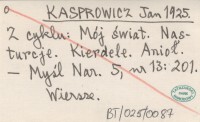 KASPROWICZ Jan 1925.
Z cyklu: Mój świat. Nas-
turcje. Kierdele. Anioł.
- Myśl Nar. 5, nr 13: 201.
Wiersze.
BT/025/0087